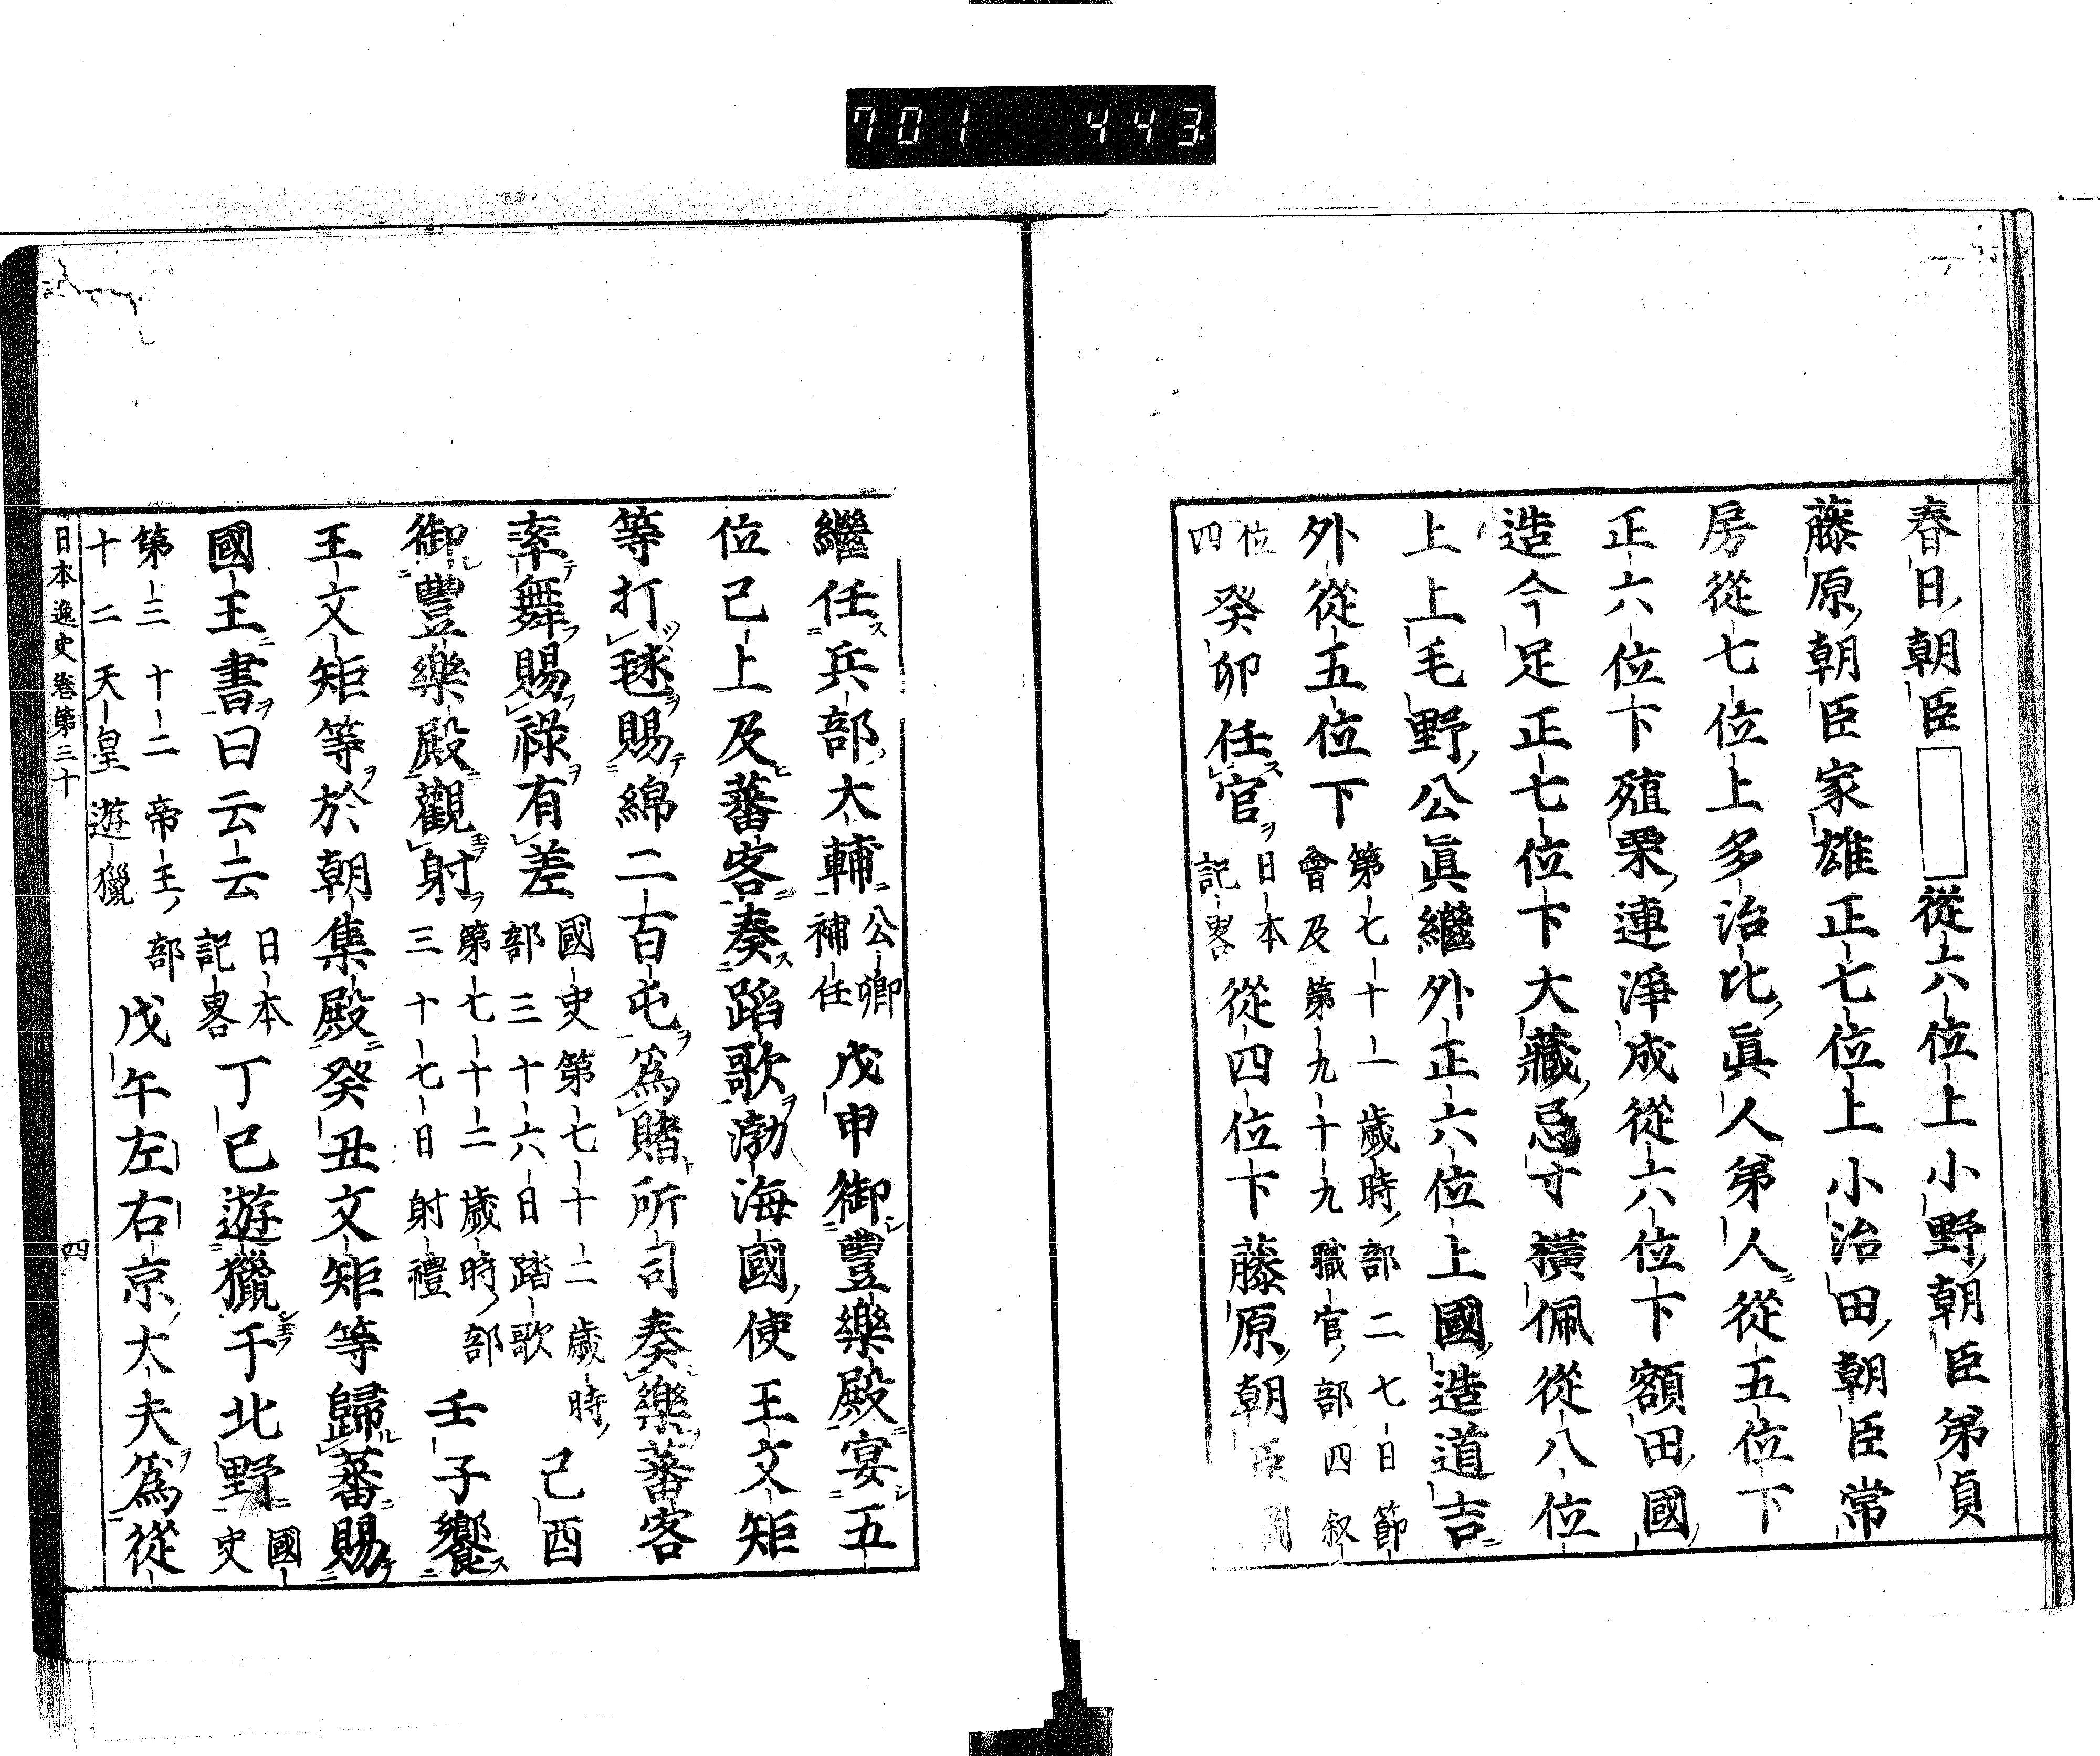 701 443
春日朝臣□從六位上小野朝臣弟貞
藤原朝臣家雄正七位上小治田朝臣常
房從七位上多治比眞人弟人從五位下
正六位下殖栗連淨成從六位下額田國
造今足正七位下大藏忌寸横佩從八位
上上毛野公眞繼外正六位上國造道吉
外從五位下第七十一歲時部二七日節
會及第九十九職官部四叙
位
四癸卯任官日本
記畧從四位下藤原朝
繼任兵部大輔公卿
補任戊申御豐樂殿宴五
位已上及蕃客奏蹈歌渤海國使王文矩
等打毬賜綿二百屯爲賭所司奏樂蕃客
率舞賜祿有差國史第七十二歲時
部三十六日踏歌己酉
御豐樂殿觀射第七十二歲時部
三十七日射禮壬子饗
王文矩等於朝集殿癸丑文矩等歸蕃賜
國王書曰云云日本
記畧丁巳遊獵于北野國
史
第三十二帝王部
十二天皇遊獵戊午左右京大夫爲從
日本逸史卷第三十 四